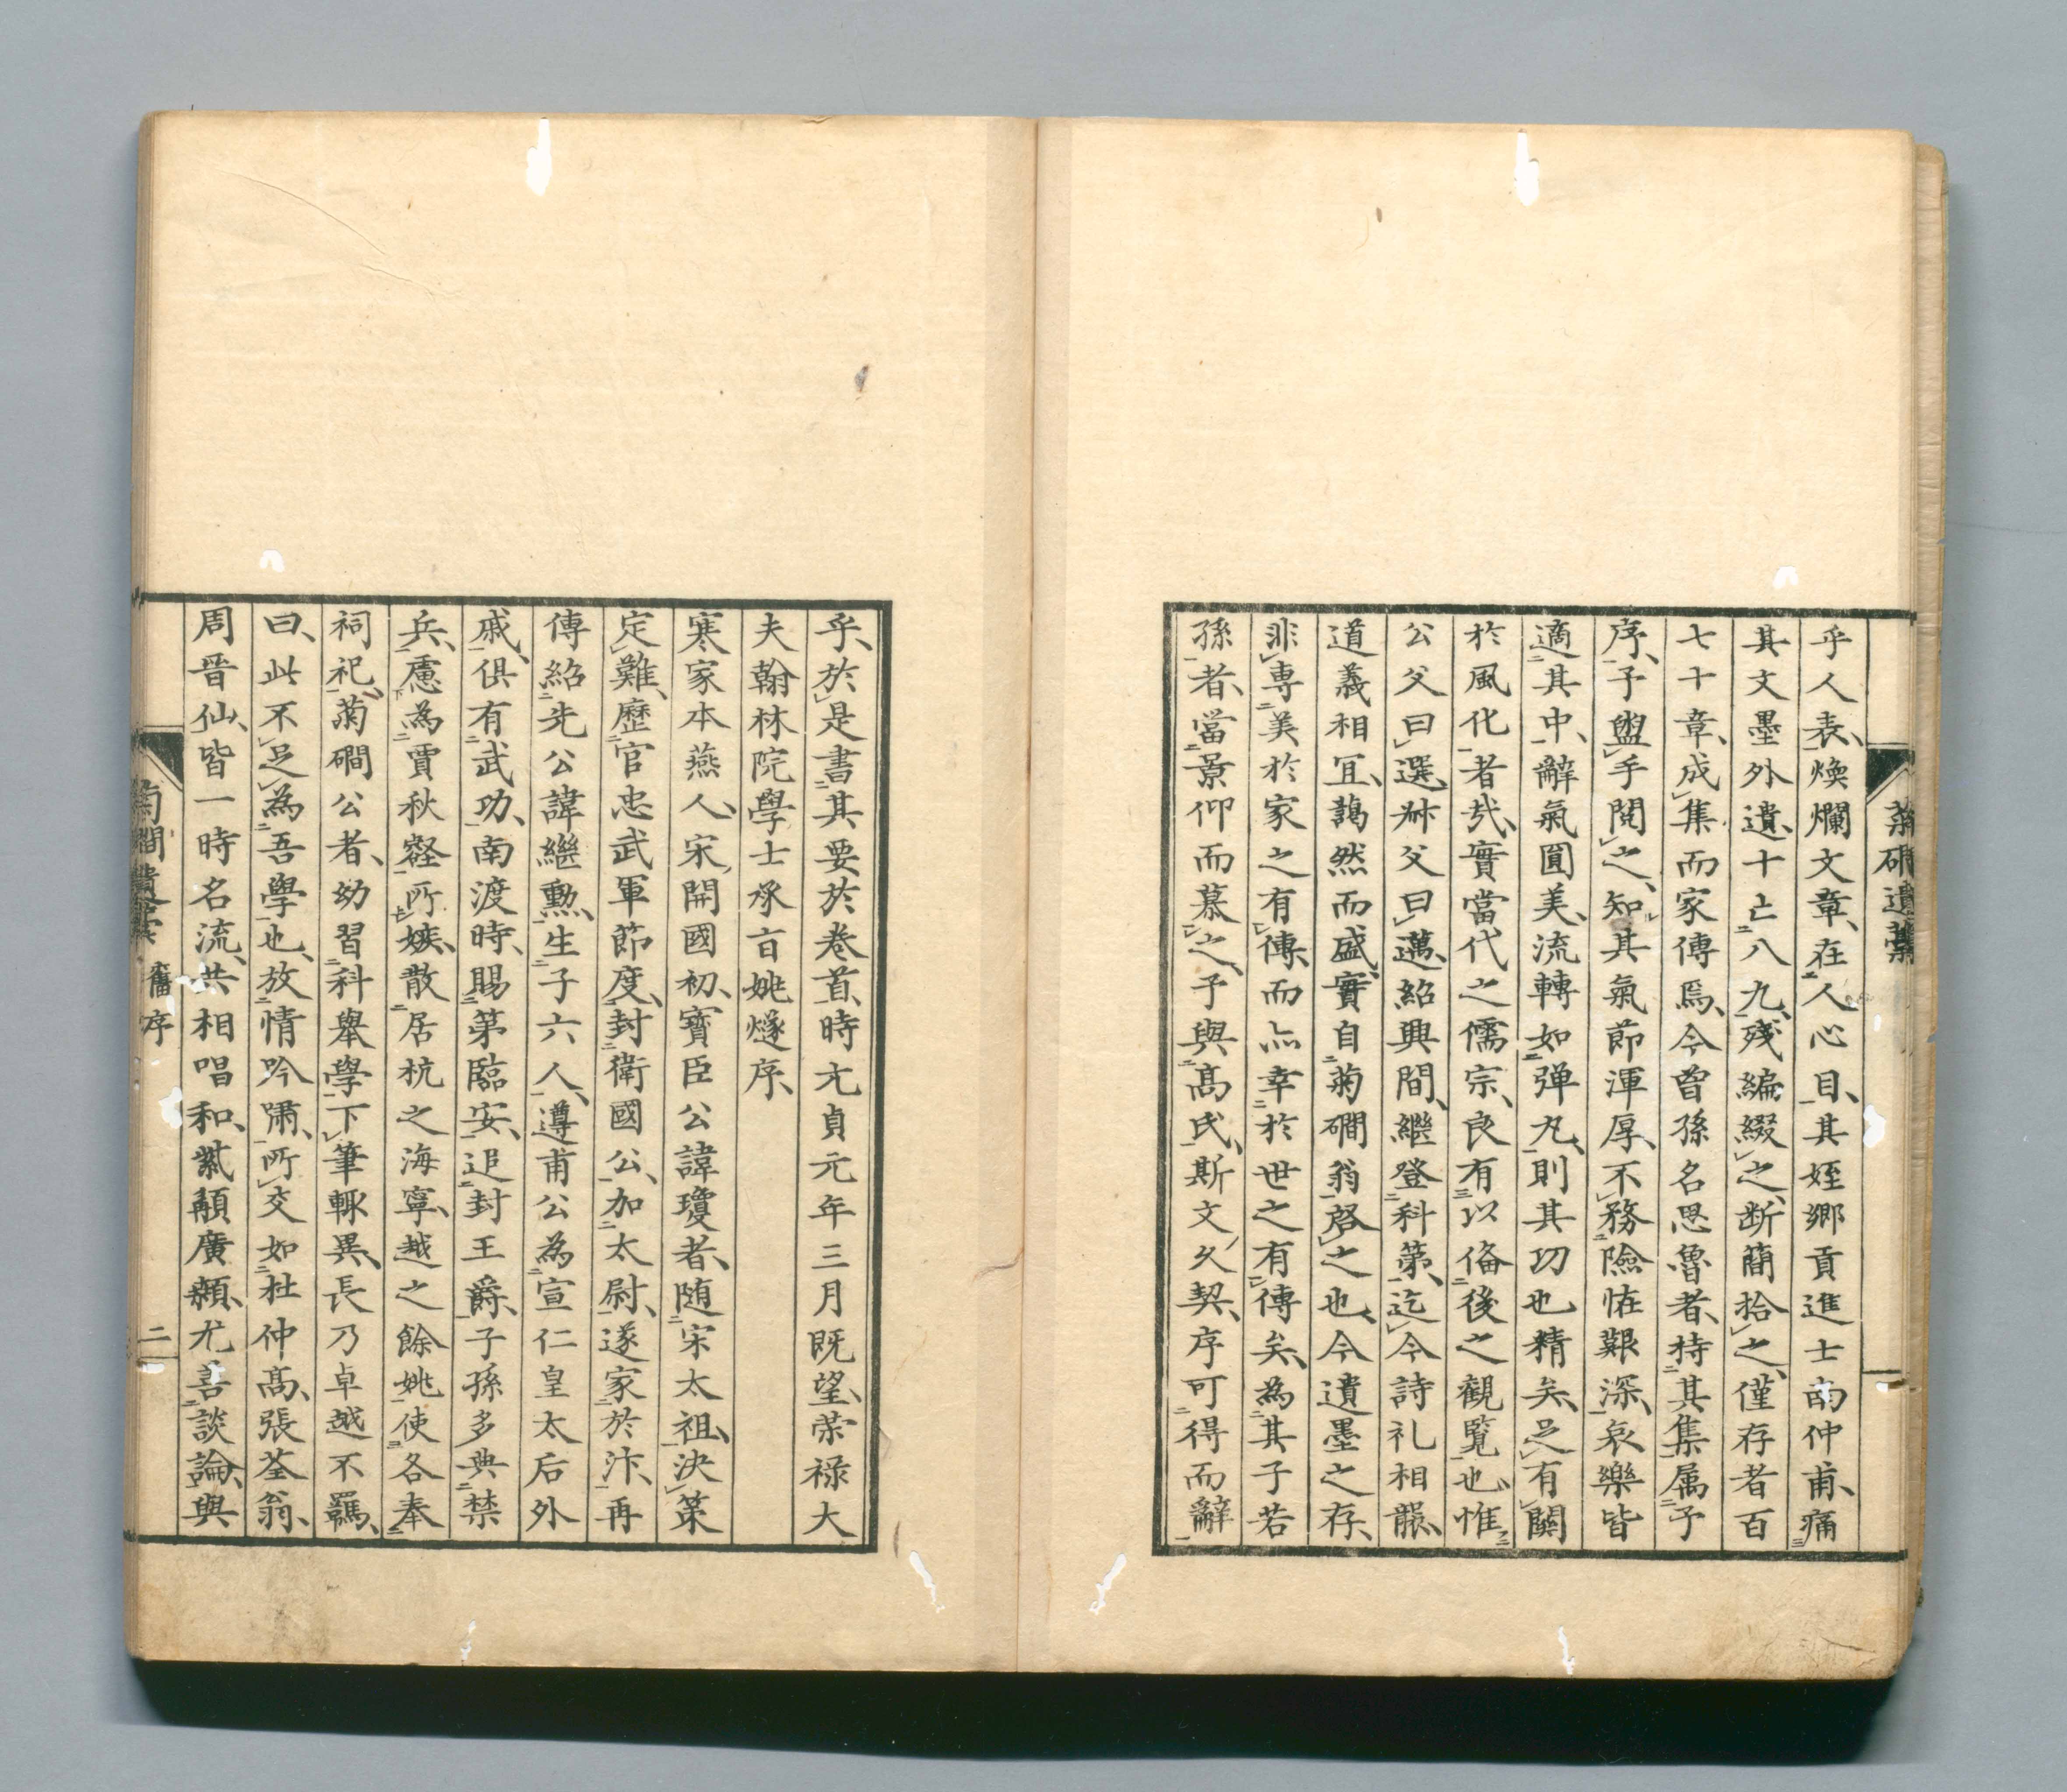 乎人表、煥爛文章、在人心目、其姪鄉貢進士南仲甫、痛
其文墨外遺、十亡八九、殘編綴之、断簡拾之、僅存者百
七十章、成集而家傳焉、今曾孫名思魯者、持其集属予
序、予盥手閱之、知其氣節渾厚、不務險恠艱深、哀樂皆
適其中、辭氣圓美、流轉如弾丸、則其切也精矣、足有關
於風化者哉、實當代之儒宗、良有以俻後之觀覧也、惟
公父曰選、叔父曰邁、紹興間、繼登科第、迄今詩礼相襲、
道義相宜、藹然而盛、實自菊磵翁啓之也、今遺墨之存、
非專美於家之有傳、而亦幸於世之有傳矣、為其子若
孫者、當景仰而慕之、予與髙氏、斯文久契、序可得而辭
乎、於是書其要於卷首、時元貞元年三月既望、榮禄大
夫翰林院學士承㫖姚燧序、
寒家本燕人、宋開國初、寶臣公諱瓊者、随宋太祖、決策
定難、歷官忠武軍節度、封衛國公、加太尉、遂家於汴、再
傳紹先公諱繼勲、生子六人、遵甫公為宣仁皇太后外
戚、俱有武功、南渡時、賜第臨安、追封王爵、子孫多典禁
兵、慮為賈秋壑所嫉、散居杭之海寧、越之餘姚、使各奉
祠祀、菊磵公者、幼習科舉學、下筆輙異、長乃卓越不羈、
曰、此不足為吾學也、放情吟嘯、所交如杜仲髙、張荃翁、
周晋仙、皆一時名流、共相唱和、紫髯廣顙、尤善談論、與
菊磵遺稾 舊序 二